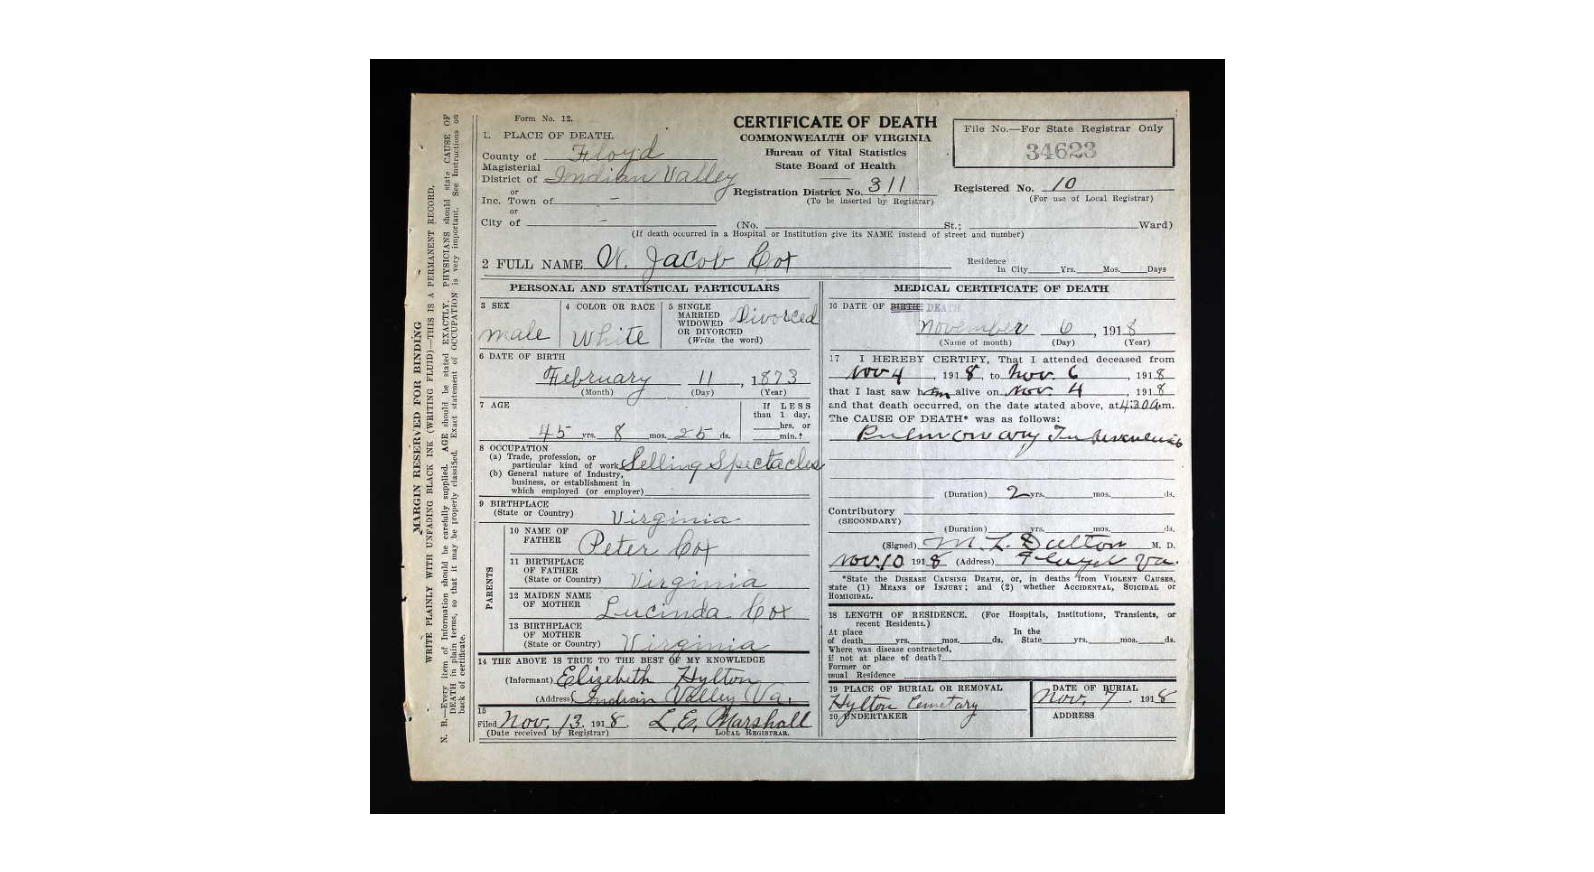 Form No. 12.
CERTIFICATE OF DEATH
COMMONWEALTH OF VIRGINIA
Bureau of Vital Statistics
State Board of Health
File No.—For State Registrar Only
34623
1. PLACE OF DEATH.
County of Floyd
Magisterial
District of Indian Valley
or
Inc. Town of -
or
City of -
Registration District No. 311
(To be inserted by Registrar)
Registered No. 10
(For use of Local Registrar)
(No. St.; Ward)
(If death occurred in a Hospital or Institution give its NAME instead of street and number)
2 FULL NAME W. Jacob Cox
Residence
In City Yrs. Mos. Days
PERSONAL AND STATISTICAL PARTICULARS
3 SEX
male
4 COLOR OR RACE
White
5 SINGLE
MARRIED
WIDOWED
OR DIVORCED
(Write the word)
Divorced
6 DATE OF BIRTH
February 11, 1873
(Month) (Day) (Year)
7 AGE
45 yrs. 8 mos. 25 ds.
If LESS
than 1 day,
hrs. or
min.?
8 OCCUPATION
(a) Trade, profession, or
particular kind of work Selling Spectacles
(b) General nature of Industry,
business, or establishment in
which employed (or employer)
9 BIRTHPLACE
(State or Country) Virginia
PARENTS
10 NAME OF
FATHER Peter Cox
11 BIRTHPLACE
OF FATHER
(State or Country) Virginia
12 MAIDEN NAME
OF MOTHER Lucinda Cox
13 BIRTHPLACE
OF MOTHER
(State or Country) Virginia
14 THE ABOVE IS TRUE TO THE BEST OF MY KNOWLEDGE
(Informant) Elizebeth Hylton
(Address) Indian Valley Va.
15
Filed Nov. 13, 1918 L. E. Marshall
(Date received by Registrar) LOCAL REGISTRAR.
MEDICAL CERTIFICATE OF DEATH
16 DATE OF BIRTH DEATH
November 6, 1918
(Name of month) (Day) (Year)
17 I HEREBY CERTIFY, That I attended deceased from
Nov 4, 1918, to Nov. 6, 1918
that I last saw him alive on Nov. 4 1918
and that death occurred, on the date stated above, at 4:30 a.m.
The CAUSE OF DEATH* was as follows:
Pulmonary Tuberculosis
(Duration) 2 yrs. mos. ds.
Contributory
(SECONDARY)
(Duration) yrs. mos. ds.
(Signed) M. L. Dalton M. D.
Nov. 10 1918 (Address) Floyd Va.
*State the DISEASE CAUSING DEATH, or, in deaths from VIOLENT CAUSES,
state (1) MEANS OF INJURY; and (2) whether ACCIDENTAL, SUICIDAL or
HOMICIDAL.
18 LENGTH OF RESIDENCE. (For Hospitals, Institutions, Transients, or
recent Residents.)
At place
of death yrs. mos. ds.
In the
State yrs. mos. ds.
Where was disease contracted,
if not at place of death?
Former or
usual Residence
19 PLACE OF BURIAL OR REMOVAL
Hylton Cemetary
DATE OF BURIAL
Nov. 7, 1918
20 UNDERTAKER
ADDRESS
MARGIN RESERVED FOR BINDING
WRITE PLAINLY WITH UNFADING BLACK INK (WRITING FLUID)—THIS IS A PERMANENT RECORD.
N. B.—Every item of information should be carefully supplied. AGE should be stated EXACTLY. PHYSICIANS should state CAUSE OF
DEATH in plain terms, so that it may be properly classified. Exact statement of OCCUPATION is very important. See Instructions on
back of certificate.